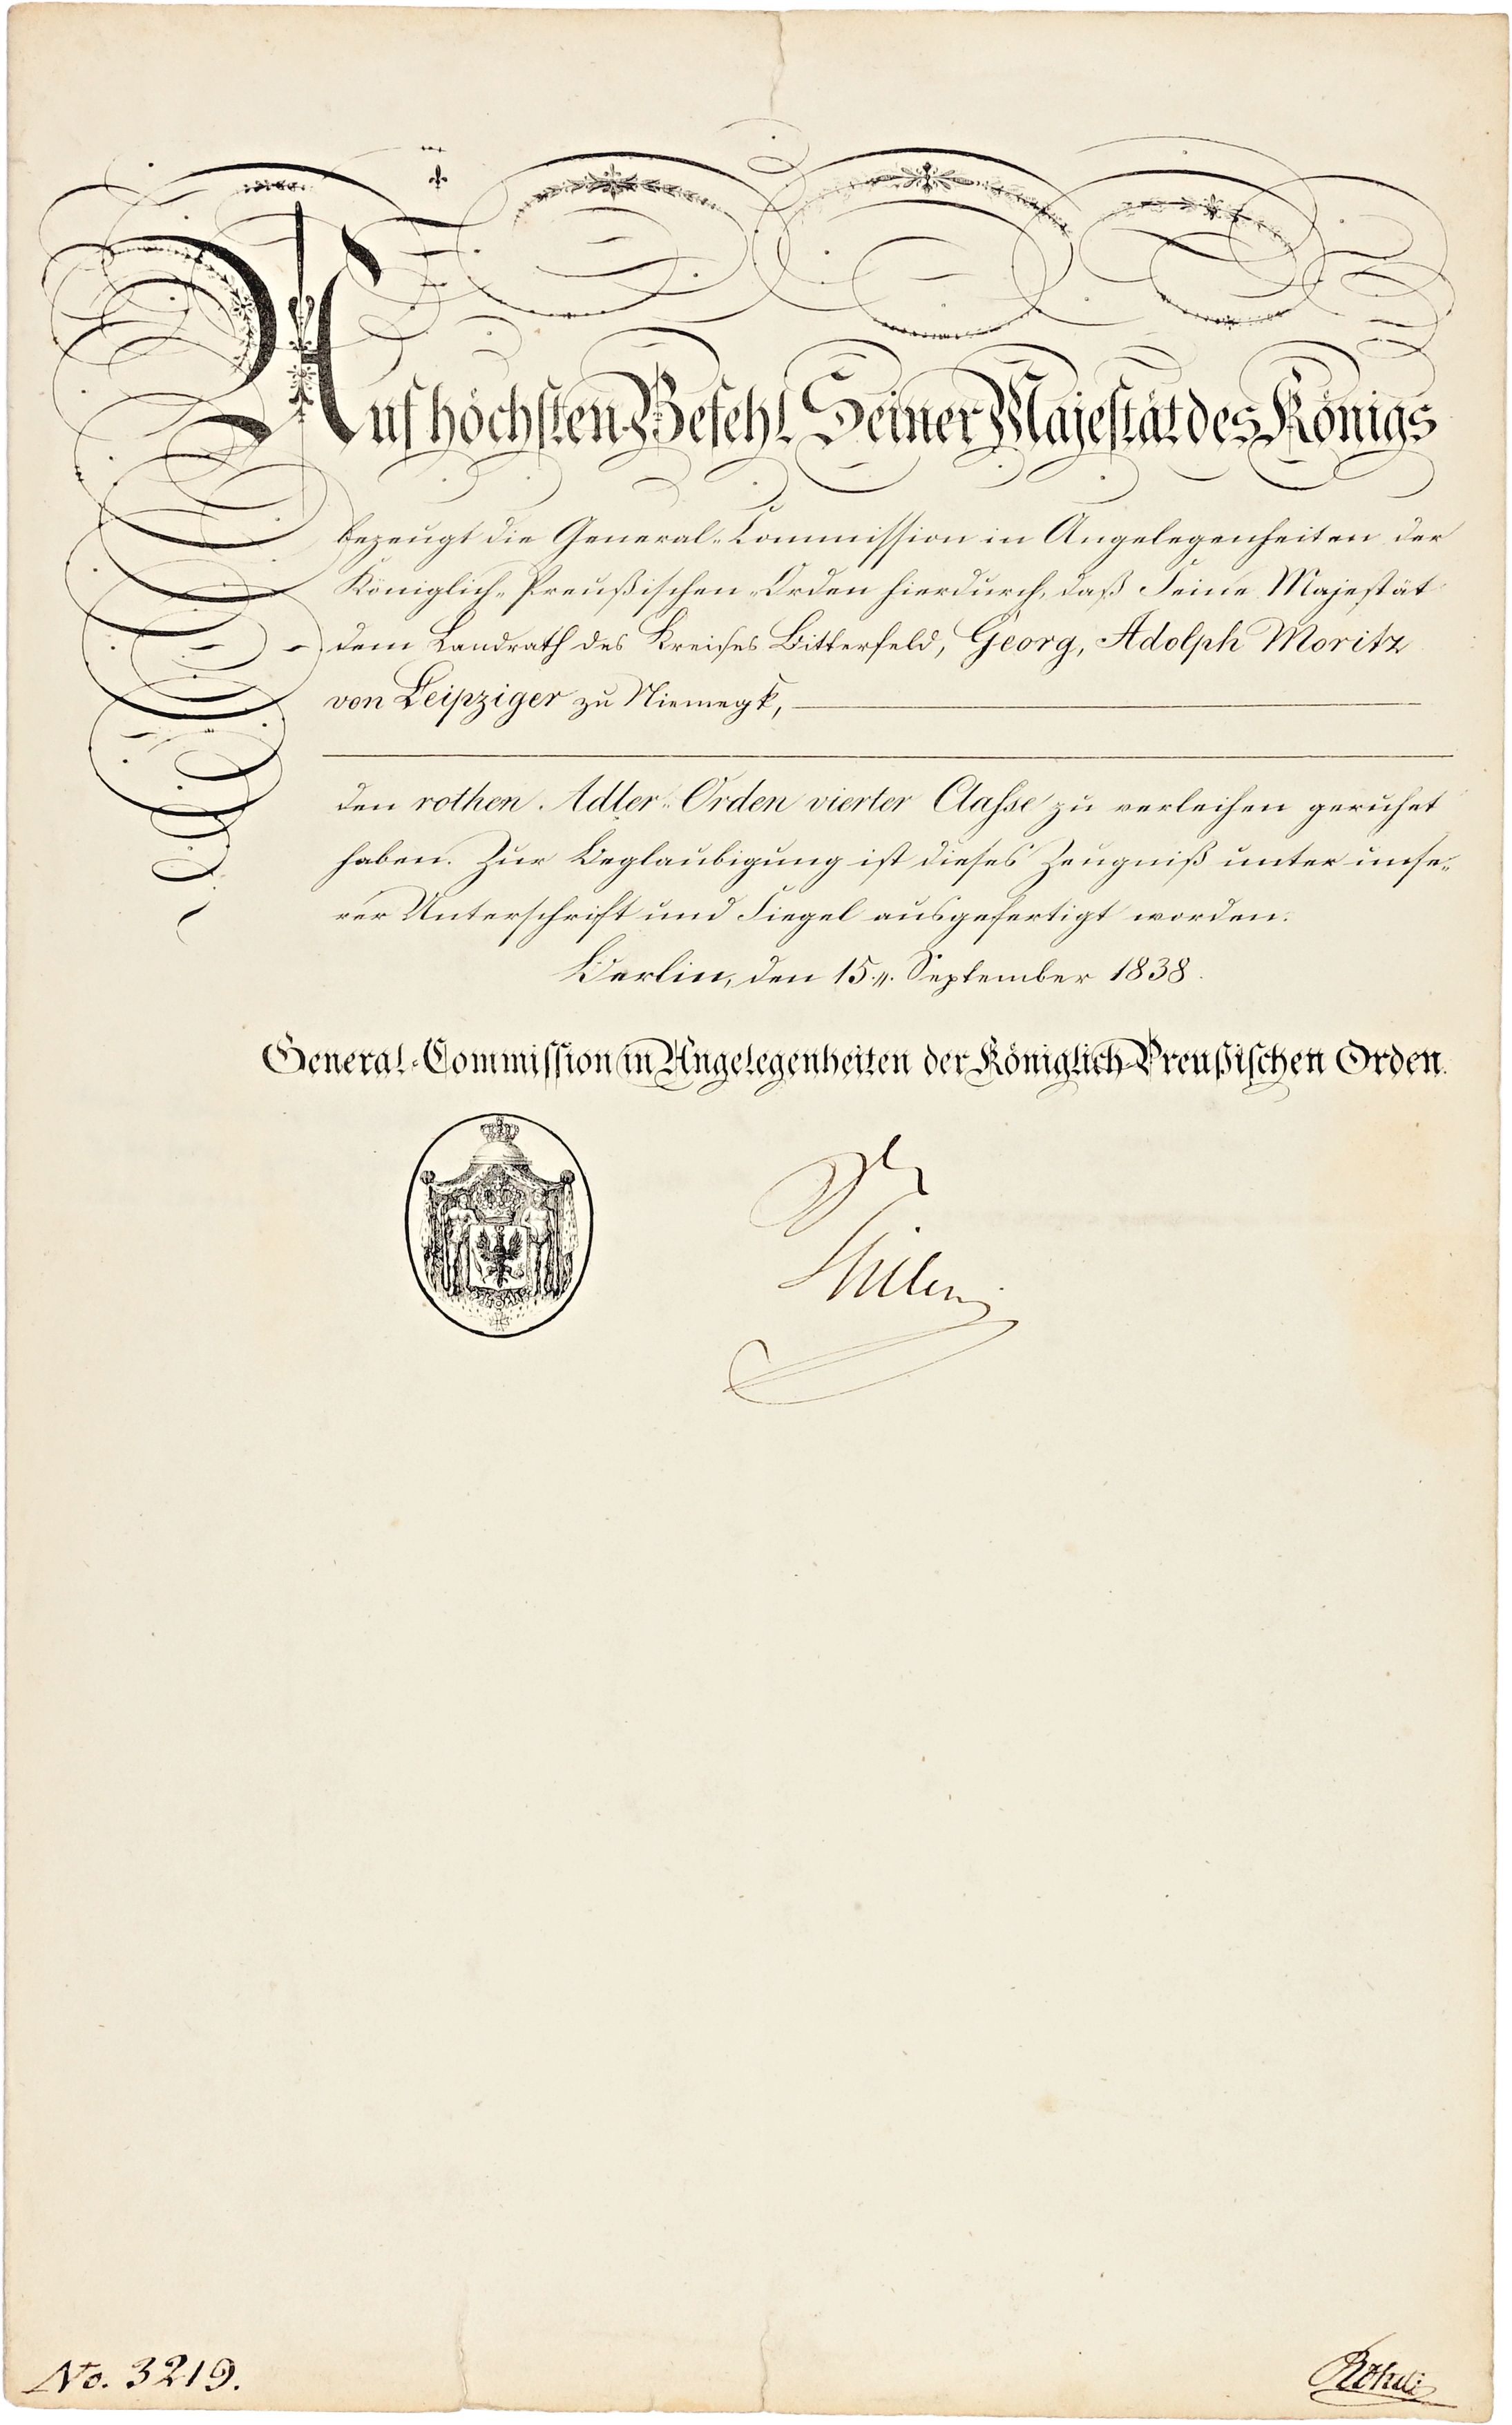 Auf höchsten Befehl Seiner Majestät des Königs
bezeugt die General-Commission in Angelegenheiten der
Königlich-Preußischen-Orden hierdurch, daß Seine Majestät
dem Landrath des Kreises Bitterfeld, Georg, Adolph Moritz
von Leipziger zu Niemegk,
den rothen Adler-Orden vierter Classe zu verleihen geruhet
haben. Zur Beglaubigung ist dieses Zeugniß unter unse-
rer Unterschrift und Siegel ausgefertigt worden.
Berlin, den 15. September 1838.
General-Commission in Angelegenheiten der Königlich-Preußischen Orden.
No. 3219.